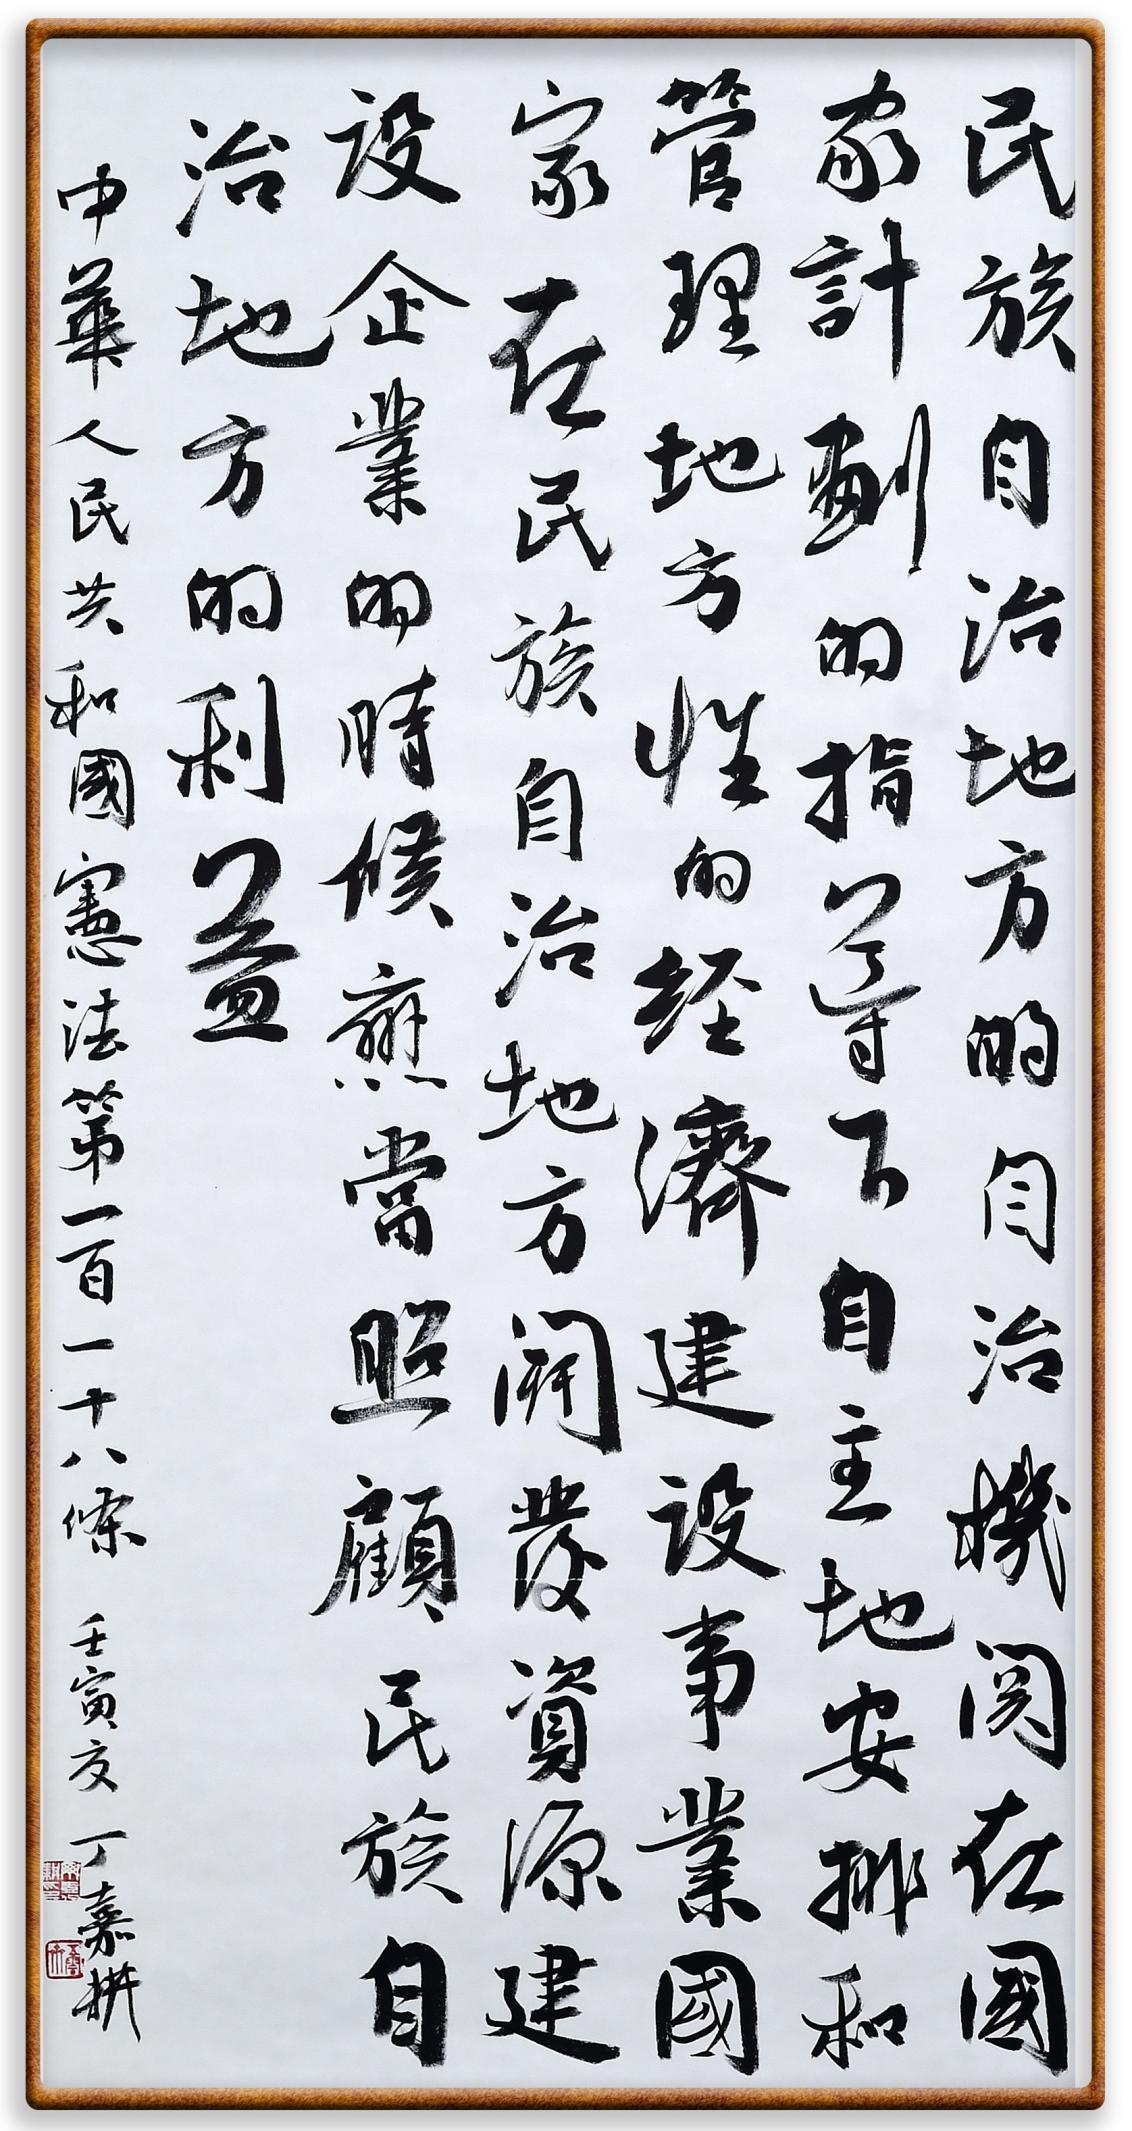 民族自治地方的自治機関在國
家計劃的指導下自主地安排和
管理地方性的经濟建设事業國
家在民族自治地方開發資源建
设企業的時候應當照顧民族自
治地方的利益
中華人民共和國憲法第一百一十八條 壬寅夏 丁嘉耕